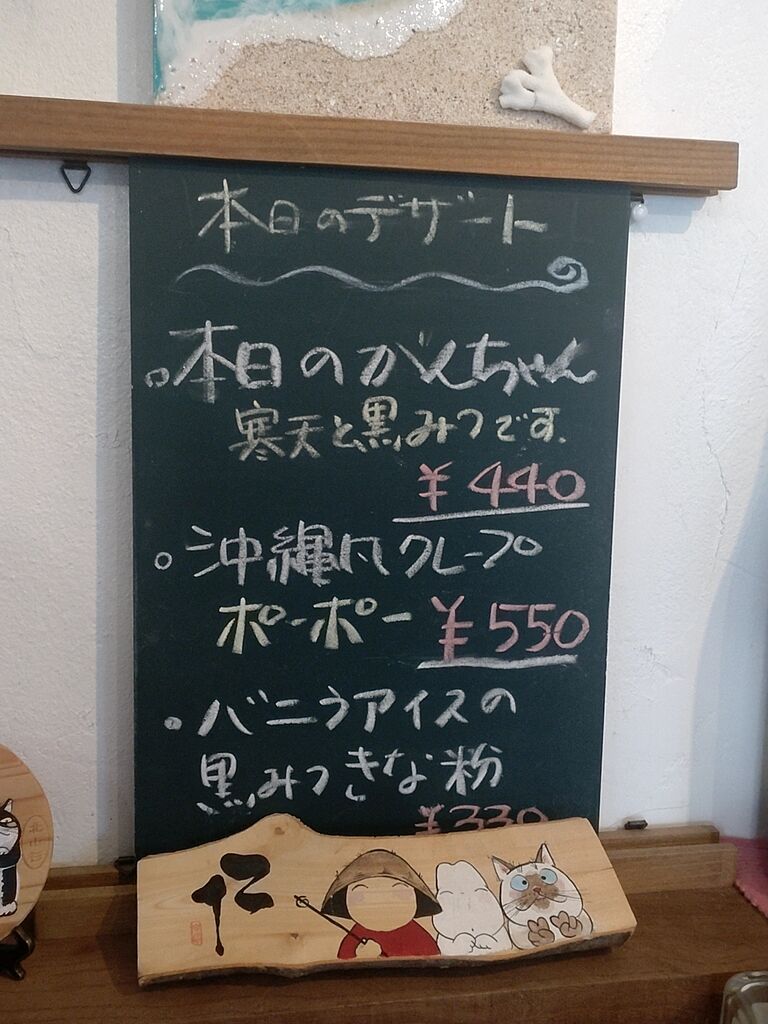 本日のデザート
本日のがんちゃん
寒天と黒みつです.
¥440
沖縄風クレープ
ポーポー ¥550
・バニラアイスの
黒みつきな粉
¥330
仁